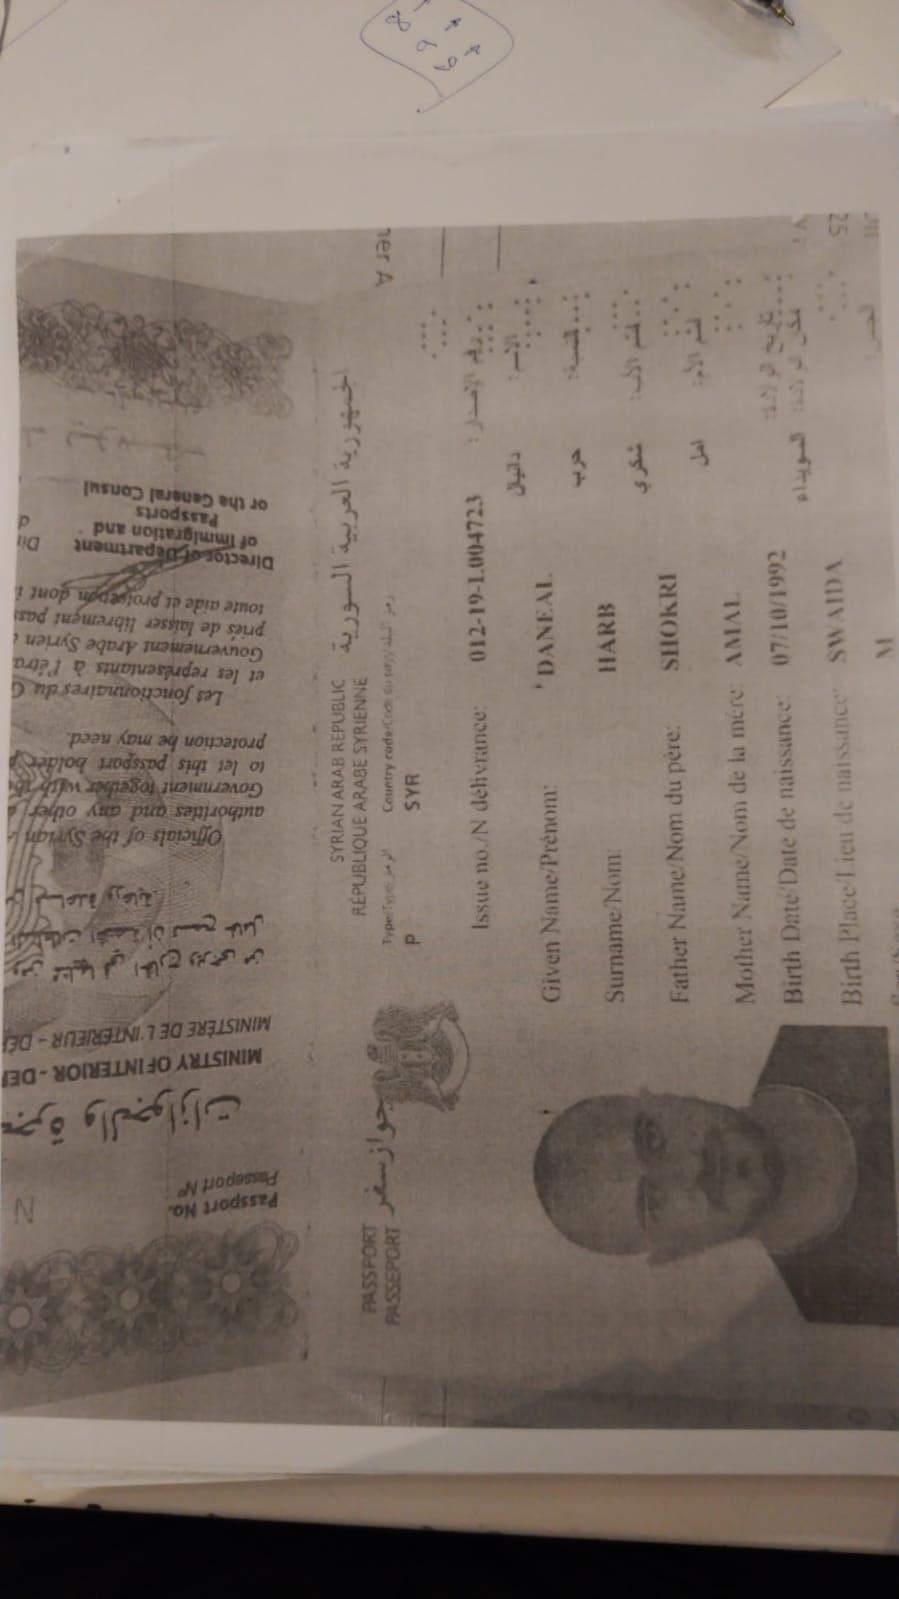 Passport No.
Passeport Nº
N
MINISTRY OF INTERIOR - DEP
MINISTÈRE DE L'INTÉRIEUR - DÉP
Officials of the Syrian
authorities and any other
Government together with the
to let this passport holder p
protection he may need.
Les fonctionnaires du G
et les représentants à l'étra
Gouvernement Arabe Syrien
priés de laisser librement pass
toute aide et protection dont i
Director of Department
of Immigration and
Passports
or the General Consul
PASSPORT
PASSEPORT
جواز سفر
SYRIAN ARAB REPUBLIC
RÉPUBLIQUE ARABE SYRIENNE
الجمهورية العربية السورية
Type/Type/الرمز
Country code/Code du pays/رمز البلد
P SYR
Issue no./N délivrance: 012-19-L004723 رقم الإصدار:
Given Name/Prénom: DANEAL دانيال الاسم:
Surname/Nom: HARB حرب النسبة:
Father Name/Nom du père: SHOKRI شكري اسم الأب:
Mother Name/Nom de la mère: AMAL امل اسم الأم:
Birth Date/Date de naissance: 07/10/1992 تاريخ الولادة:
Birth Place/Lieu de naissance: SWAIDA السويداء مكان الولادة:
M الجنس: